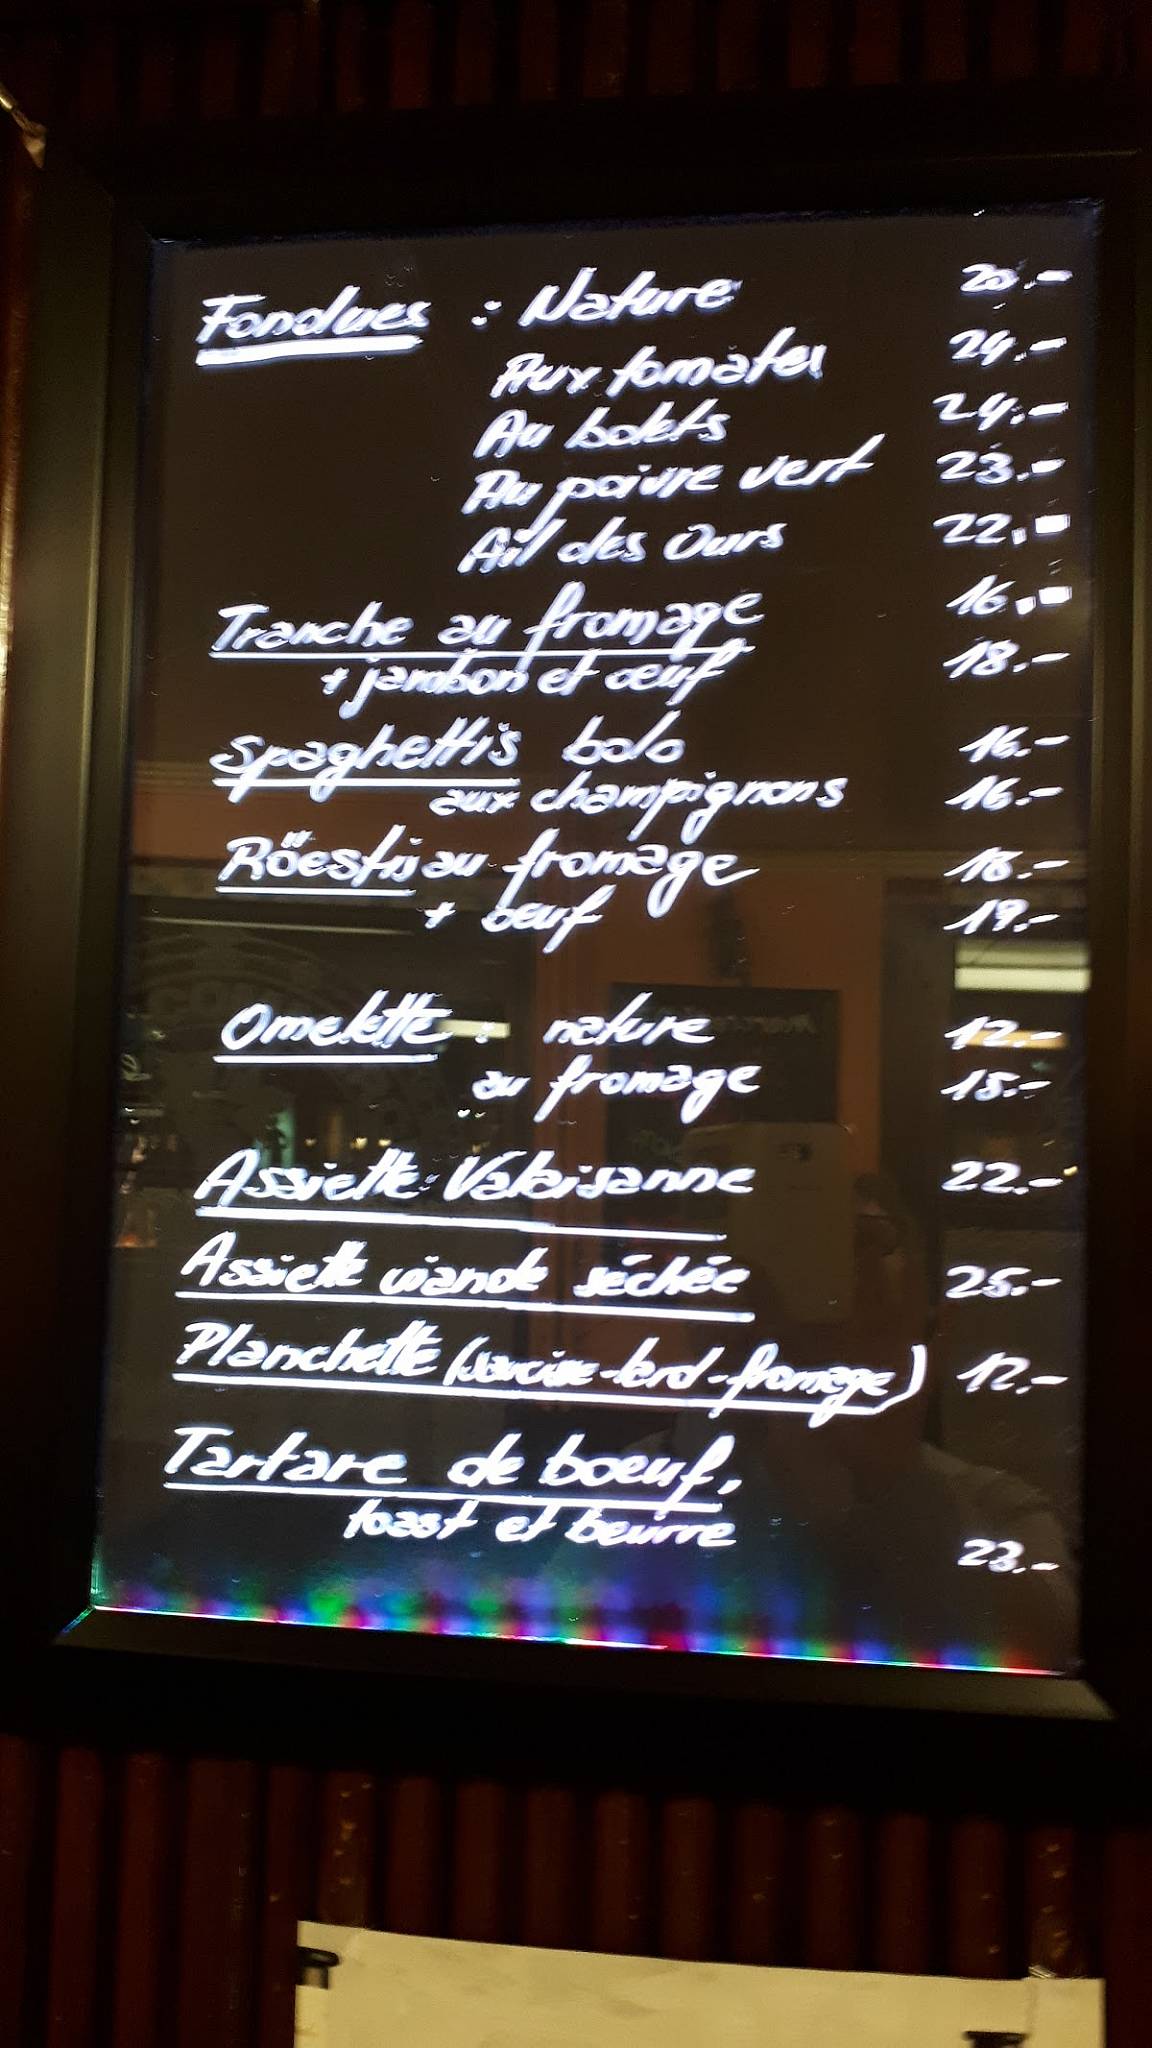 Fondues : Nature 20.-
Aux tomates 24.-
Au bolets 24.-
Au poivre vert 23.-
Ail des Ours 22.-
Tranche au fromage 16.-
+ jambon et œuf 18.-
Spaghettis bolo 16.-
aux champignons 16.-
Röestis au fromage 18.-
+ oeuf 19.-
Omelette : nature 12.-
au fromage 15.-
Assiette Valaisanne 22.-
Assiette viande séchée 25.-
Planchette (saucisse-lard-fromage) 12.-
Tartare de boeuf,
toast et beurre 23.-